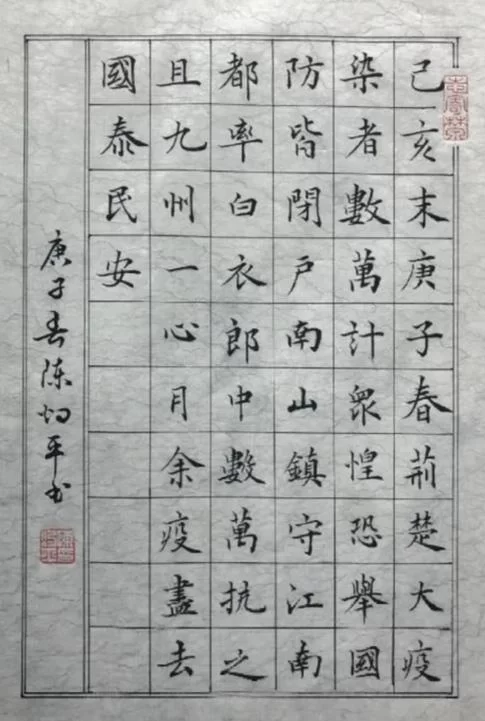 己亥末庚子春荊楚大疫
染者數萬計眾惶恐舉國
防皆閉戶南山鎮守江南
都率白衣郎中數萬抗之
且九州一心月余疫盡去
國泰民安
庚子春陳平书